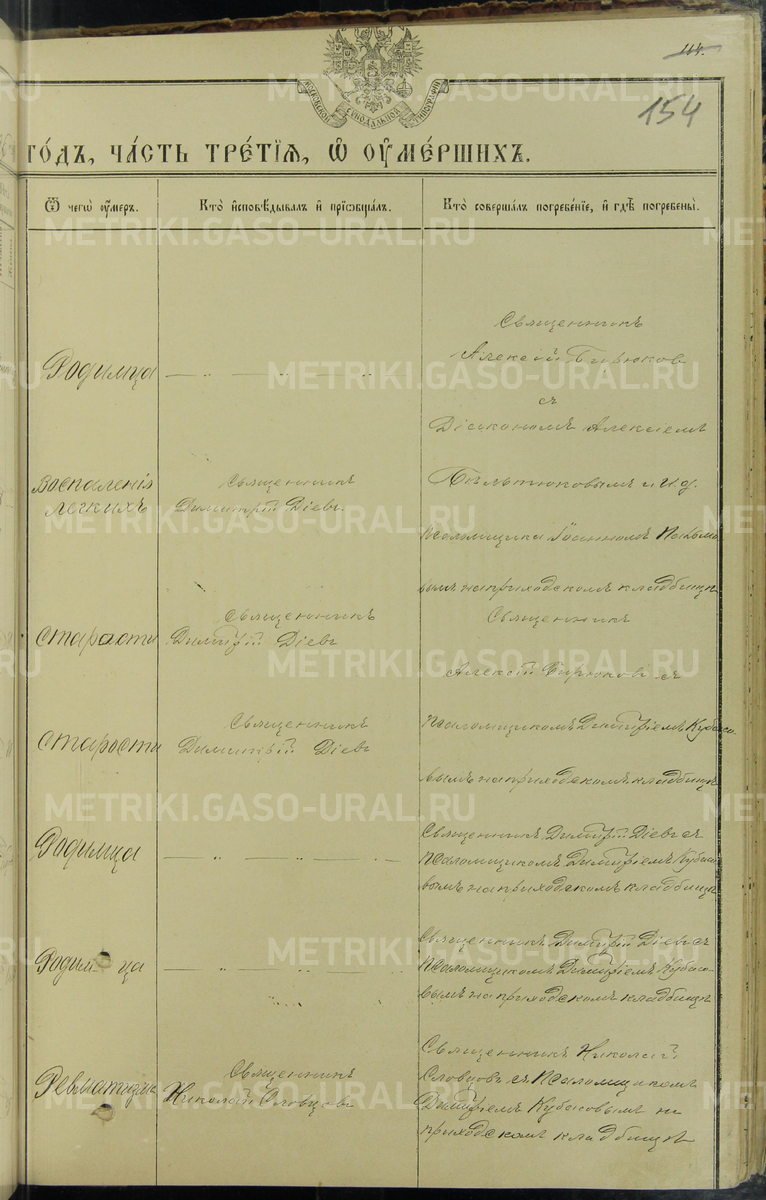 114.
154
МОСКОВСКОЙ СѴНОДАЛЬНОЙ ТИПОГРАФІИ
го́дъ, ча́сть тре́тїѧ, ѡ҆ ᲂу҆ме́ршихъ.
Ѿ чегѡ̀ ᲂу҆́меръ.
Кто̀ и҆сповѣ́дывалъ и҆ прїѡбща́лъ.
Кто̀ соверша́лъ погребе́нїе, и҆ гдѣ̀ погребены̀.
Родимца
Священникъ
Алексій Бирюков
съ
Діакономъ Алексіемъ
Воспаленія
легкихъ
Священникъ
Димитрій Діевъ.
и. д.
псаломщика Іоанномъ
вымъ на приходскомъ кладбищѣ
Старости
Священникъ
Димитрій Діевъ
Священникъ
Алексій Бирюковъ съ
Старости
Священникъ
Димитрій Діевъ
псаломщикомъ Димитріемъ Кубасо
вымъ на приходскомъ кладбищѣ
Родимца
Священникъ Димитрій Діевъ съ
псаломщикомъ Димитріемъ Кубасо
вымъ на приходскомъ кладбищѣ
Родимца
Священникъ Димитрій Діевъ съ
псаломщикомъ Димитріемъ Кубасо
вымъ на приходскомъ кладбищѣ
Ревматизма
Священникъ
Николай Словцовъ
Священникъ Николай
Словцовъ съ Псаломщикомъ
Димитріемъ Кубасовымъ на
приходскомъ кладбищѣ
METRIKI.GASO-URAL.RU